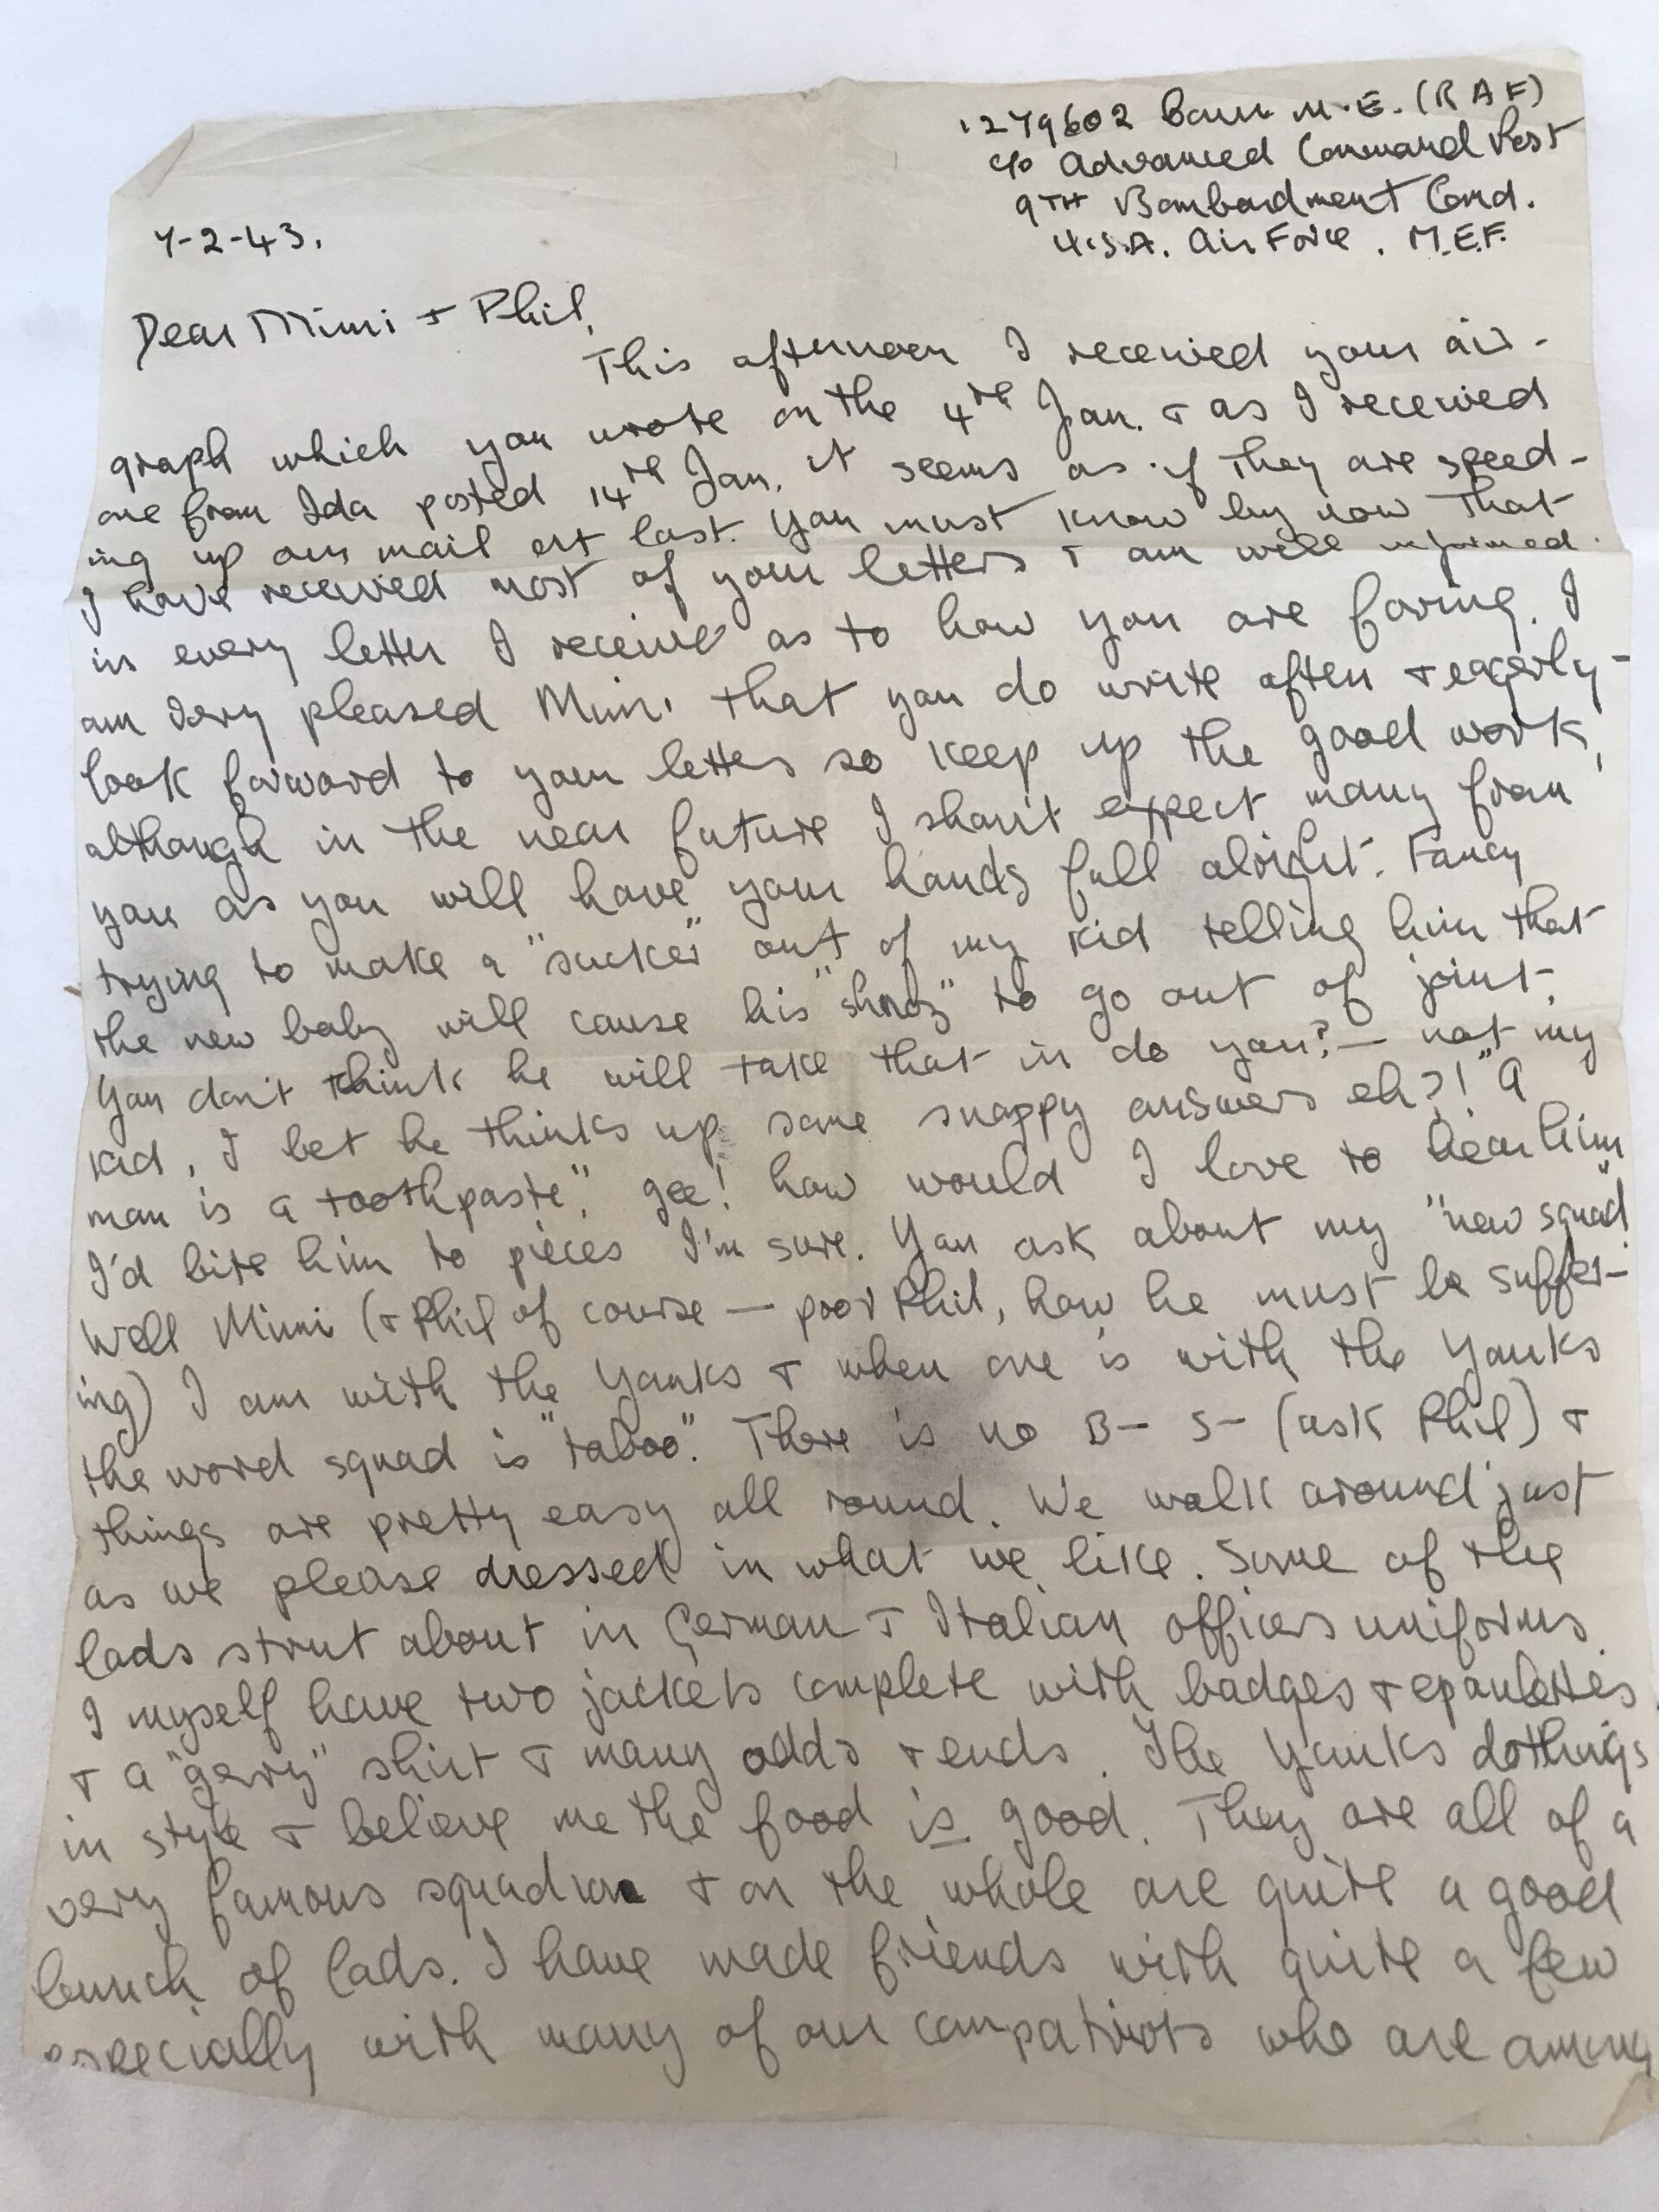 1279602 M.E. (RAF)
c/o Advanced Command Post
9TH Bombardment Comd.
U.S.A. Air Force. M.E.F.
7-2-43.
Dear Mimi + Phil,
This afternoon I received your air-
graph which you wrote on the 4th Jan. + as I received
one from Ida posted 14th Jan. it seems as if they are speed-
ing up our mail at last. You must know by now that
I have received most of your letters + am well informed
in every letter I receive as to how you are faring. I
am very pleased Mimi that you do write often + eagerly
look forward to your letters so keep up the good work,
although in the near future I shan't expect many from
you as you will have your hands full alright. Fancy
trying to make a "sucker" out of my kid telling him that
the new baby will cause his "shnoz" to go out of joint.
You don't think he will take that in do you? — not my
kid, I bet he thinks up some snappy answers eh?! "A
man is a toothpaste", gee! how would I love to hear him
I'd bite him to pieces I'm sure. You ask about my "new squad".
Well Mimi (+ Phil of course — poor Phil, how he must be suffer-
ing) I am with the Yanks + when one is with the Yanks
the word squad is "taboo". There is no B— S— (ask Phil) +
things are pretty easy all round. We walk around just
as we please dressed in what we like. Some of the
lads strut about in German + Italian officers uniforms.
I myself have two jackets complete with badges + epaulettes
+ a "gerry" shirt + many odds + ends. The Yanks do things
in style + believe me the food is good. They are all of a
very famous squadron + on the whole are quite a good
bunch of lads. I have made friends with quite a few
especially with many of our compatriots who are among